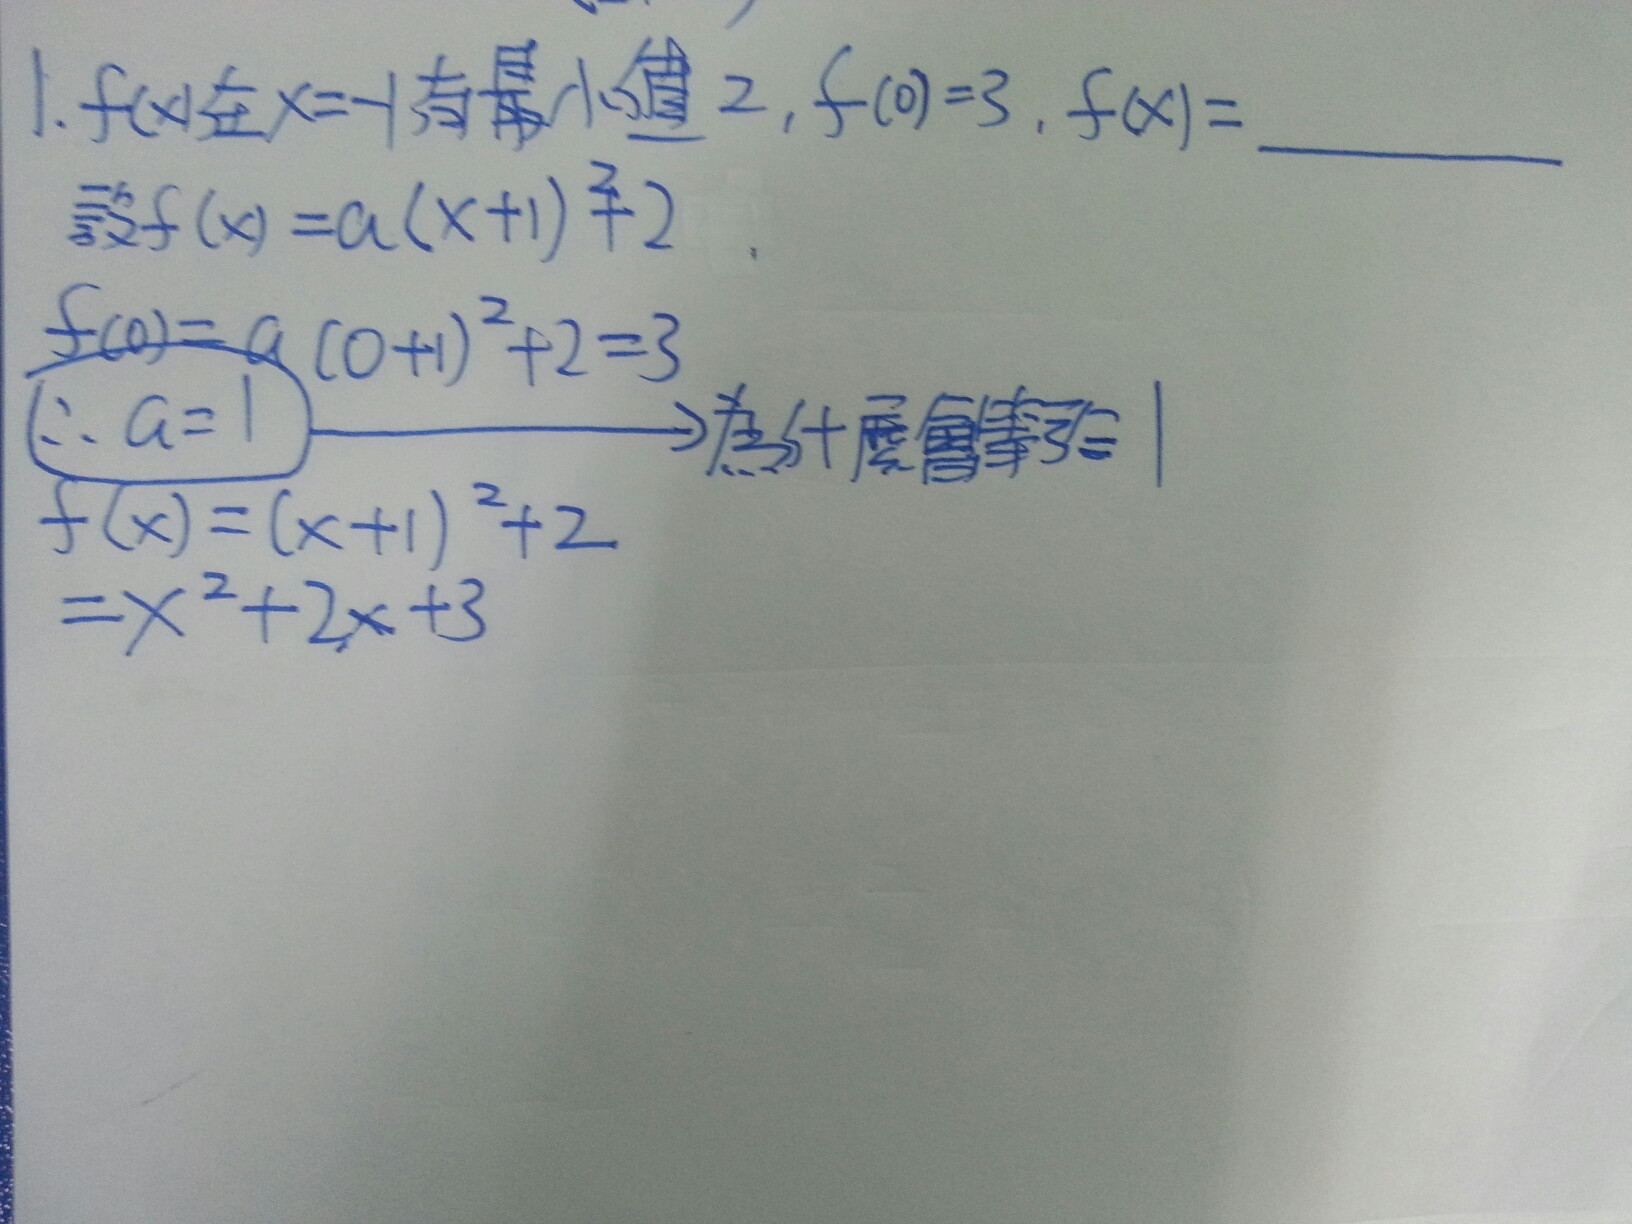 1. f(x)在x=-1有最小值2, f(0)=3, f(x)=
設f(x)=a(x+1)²+2
f(0)=a(0+1)²+2=3
∴a=1 → 為什麼會等於1
f(x)=(x+1)²+2
=x²+2x+3